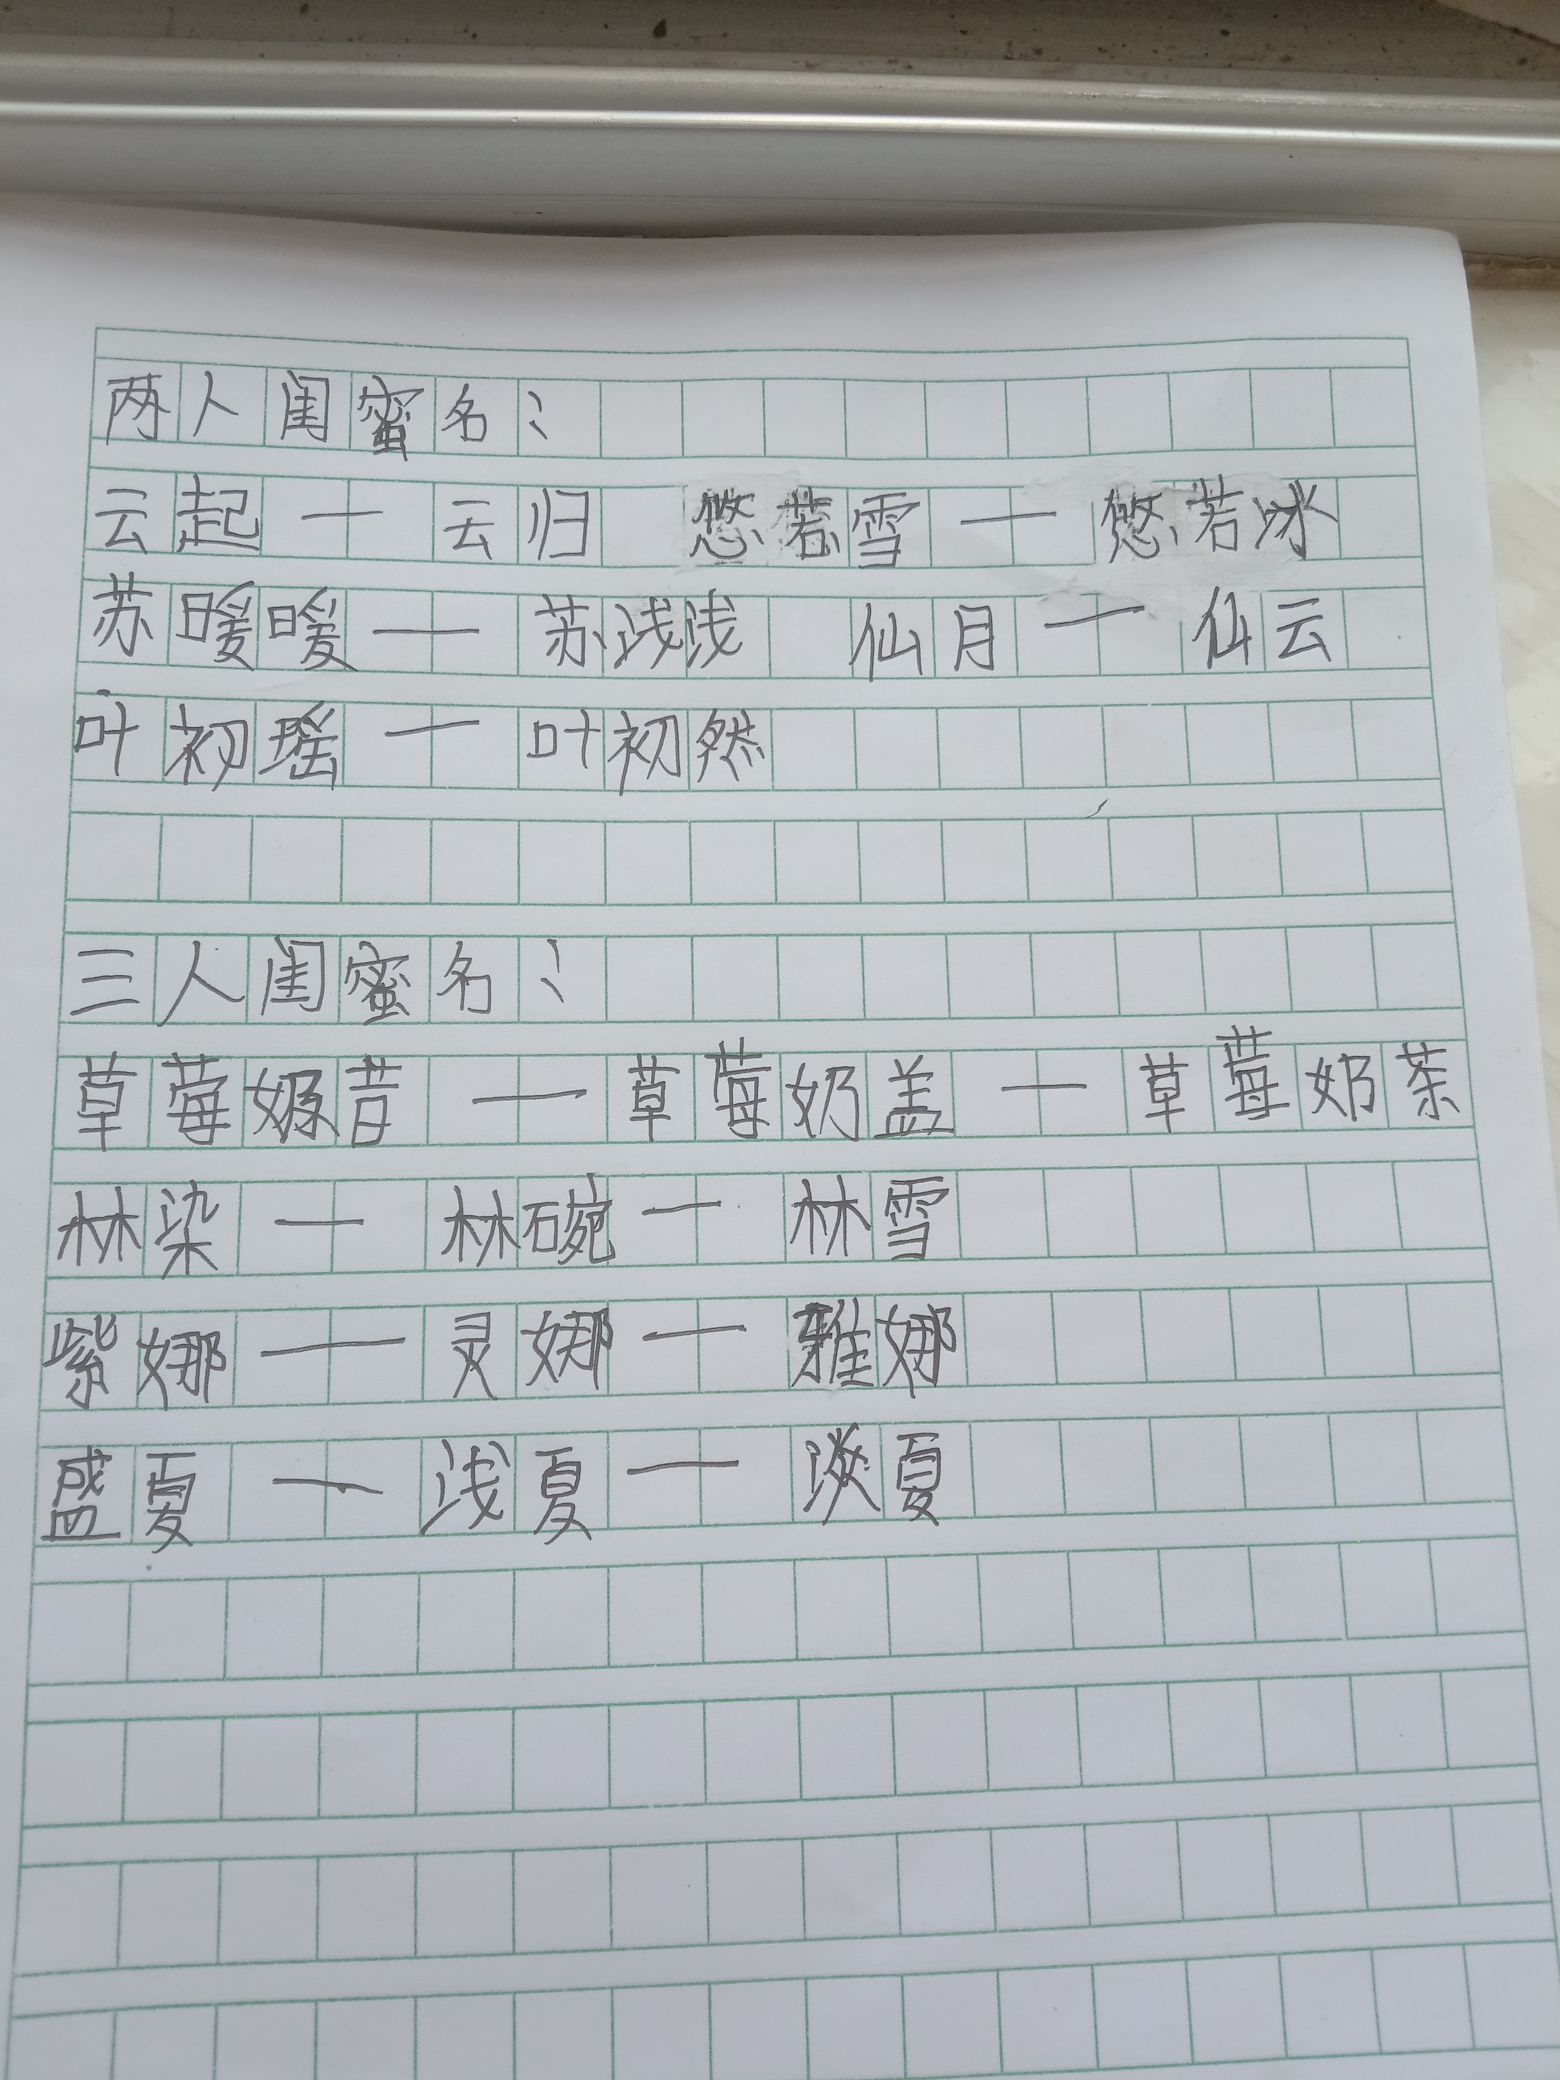 两人闺蜜名：
云起——云归 悠若雪——悠若冰
苏暖暖——苏浅浅 仙月——仙云
叶初瑶——叶初然
三人闺蜜名：
草莓奶昔——草莓奶盖——草莓奶茶
林染——林碗——林雪
紫娜——灵娜——雅娜
盛夏——浅夏——淡夏